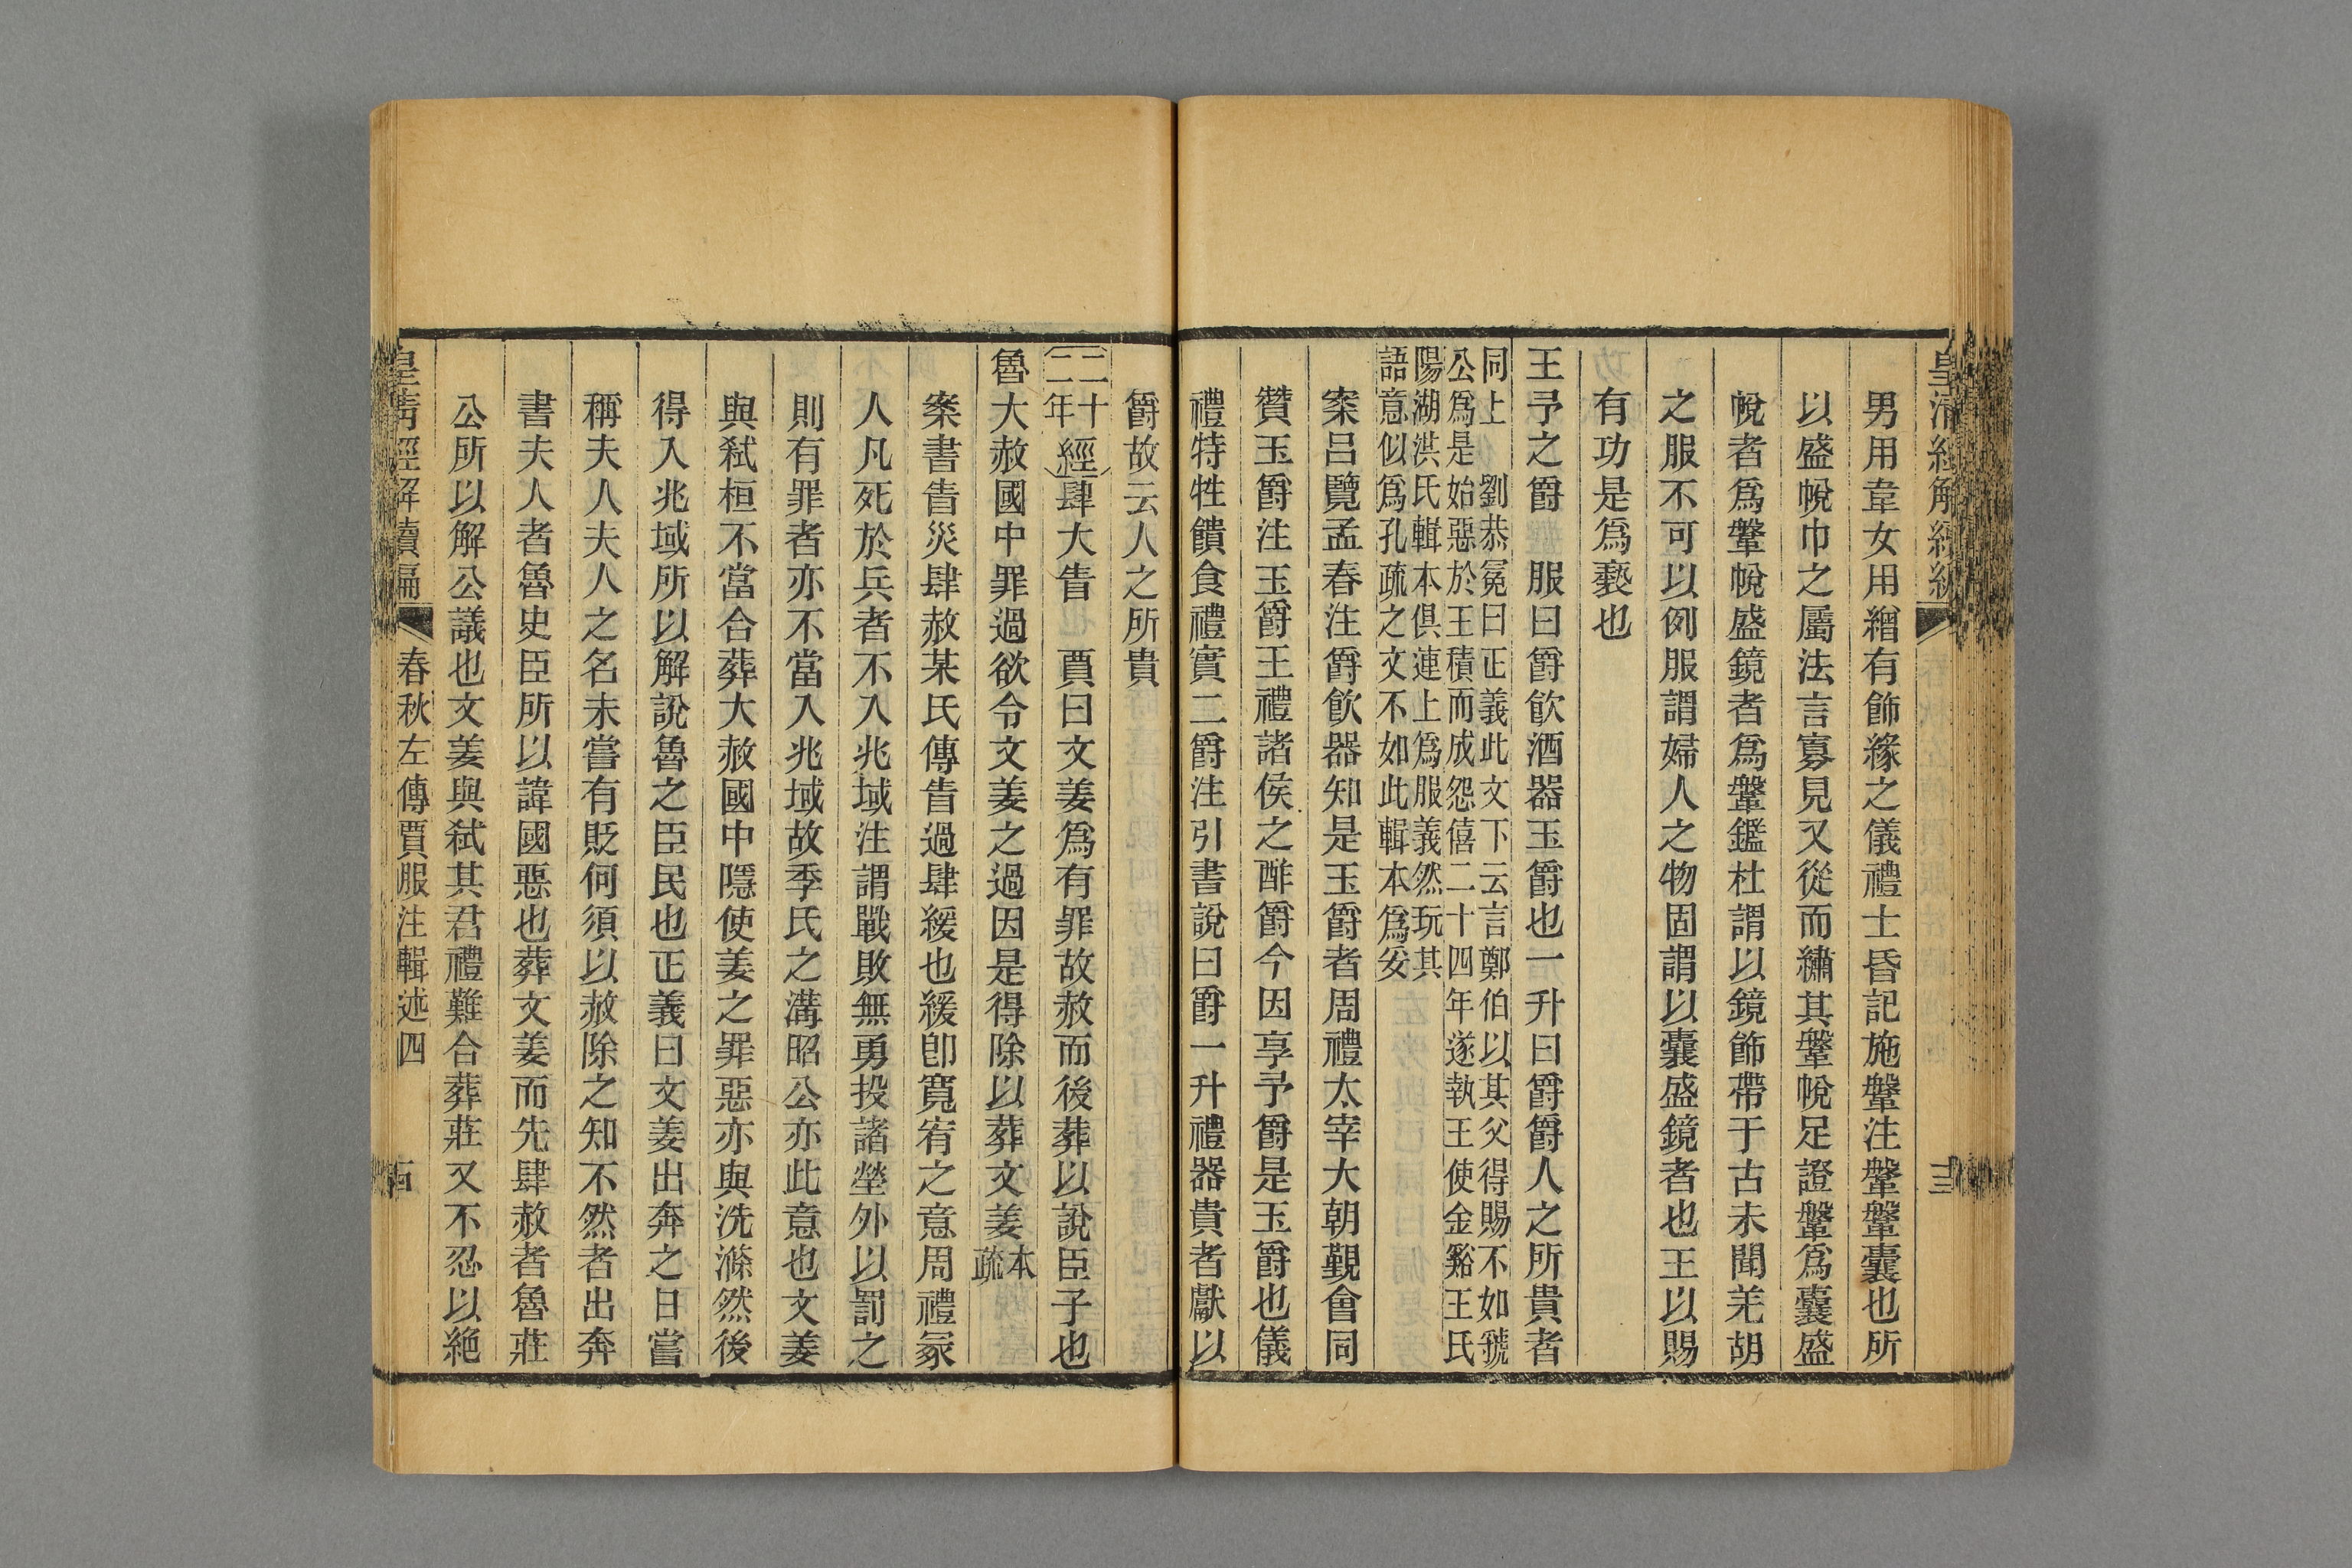 皇清經解續編
十三
男用韋女用繒有飾緣之儀禮士昏記施鞶注鞶鞶囊也所
以盛帨巾之屬法言寡見又從而繡其鞶帨足證鞶爲囊盛
帨者爲鞶帨盛鏡者爲鞶鑑杜謂以鏡飾帶于古未聞羌胡
之服不可以例服謂婦人之物固謂以囊盛鏡者也王以賜
有功是爲褻也
王予之爵 服曰爵飮酒器玉爵也一升曰爵爵人之所貴者
同上 劉恭冕曰正義此文下云言鄭伯以其父得賜不如虢
公爲是始惡於王積而成怨僖二十四年遂執王使金谿王氏
陽湖洪氏輯本俱連上爲服義然玩其
語意似爲孔疏之文不如此輯本爲妥
案呂覽孟春注爵飮器知是玉爵者周禮太宰大朝覲會同
贊玉爵注玉爵王禮諸侯之酢爵今因享予爵是玉爵也儀
禮特牲饋食禮實二爵注引書說曰爵一升禮器貴者獻以
爵故云人之所貴
二十二年經肆大眚 賈曰文姜爲有罪故赦而後葬以說臣子也
魯大赦國中罪過欲令文姜之過因是得除以葬文姜本疏
案書眚災肆赦某氏傳眚過肆緩也緩卽寬宥之意周禮冢
人凡死於兵者不入兆域注謂戰敗無勇投諸塋外以罰之
則有罪者亦不當入兆域故季氏之溝昭公亦此意也文姜
與弒桓不當合葬大赦國中隱使姜之罪惡亦與洗滌然後
得入兆域所以解說魯之臣民也正義曰文姜出奔之日嘗
稱夫人夫人之名未嘗有貶何須以赦除之知不然者出奔
書夫人者魯史臣所以諱國惡也葬文姜而先肆赦者魯莊
公所以解公議也文姜與弒其君禮難合葬莊又不忍以絶
皇清經解續編
春秋左傳賈服注輯述四